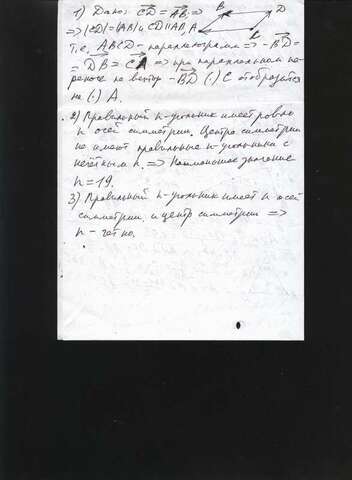 1) Дано: CD = AB, ⇒
⇒ |CD| = |AB| и CD || AB,
B
D
A
C
т.е. ABCD - параллелограмм ⇒ -BD =
= DB = CA ⇒ при параллельном пе-
реносе на вектор -BD (·) C отобразится
на (·) A.
2) Правильный n-угольник имеет ровно
n осей симметрии. Центра симметрии
не имеют правильные n-угольники с
нечётным n. ⇒ Наименьшее значение
n = 19.
3) Правильный n-угольник имеет n осей
симметрии и центр симметрии ⇒
n - чётно.